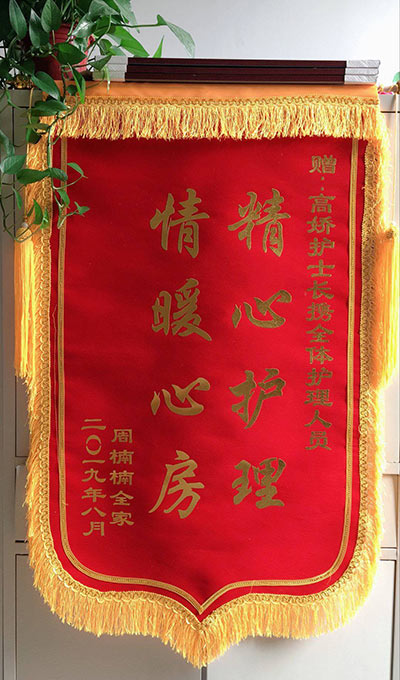 赠:高娇护士长携全体护理人员
精心护理
情暖心房
周楠楠全家
二〇一九年八月